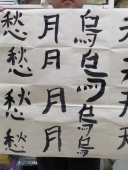 烏烏烏烏
月月月月
愁愁愁愁